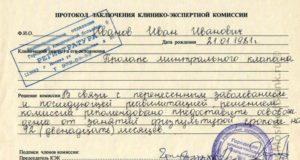 ПРОТОКОЛ ЗАКЛЮЧЕНИЯ КЛИНИКО-ЭКСПЕРТНОЙ КОМИССИИ
Ф.И.О. Иванов Иван Иванович
Дата рождения 21.01.1981г.
РЕГИСТРАТУРА
Пролапс митрального клапана
Решение комиссии В связи с перенесенным заболеванием
и последующей реабилитацией решением
комиссии рекомендовано предоставить освобож-
дение от занятий физкультурой сроком на
12 (двенадцать) месяцев.
Председатель КЭК